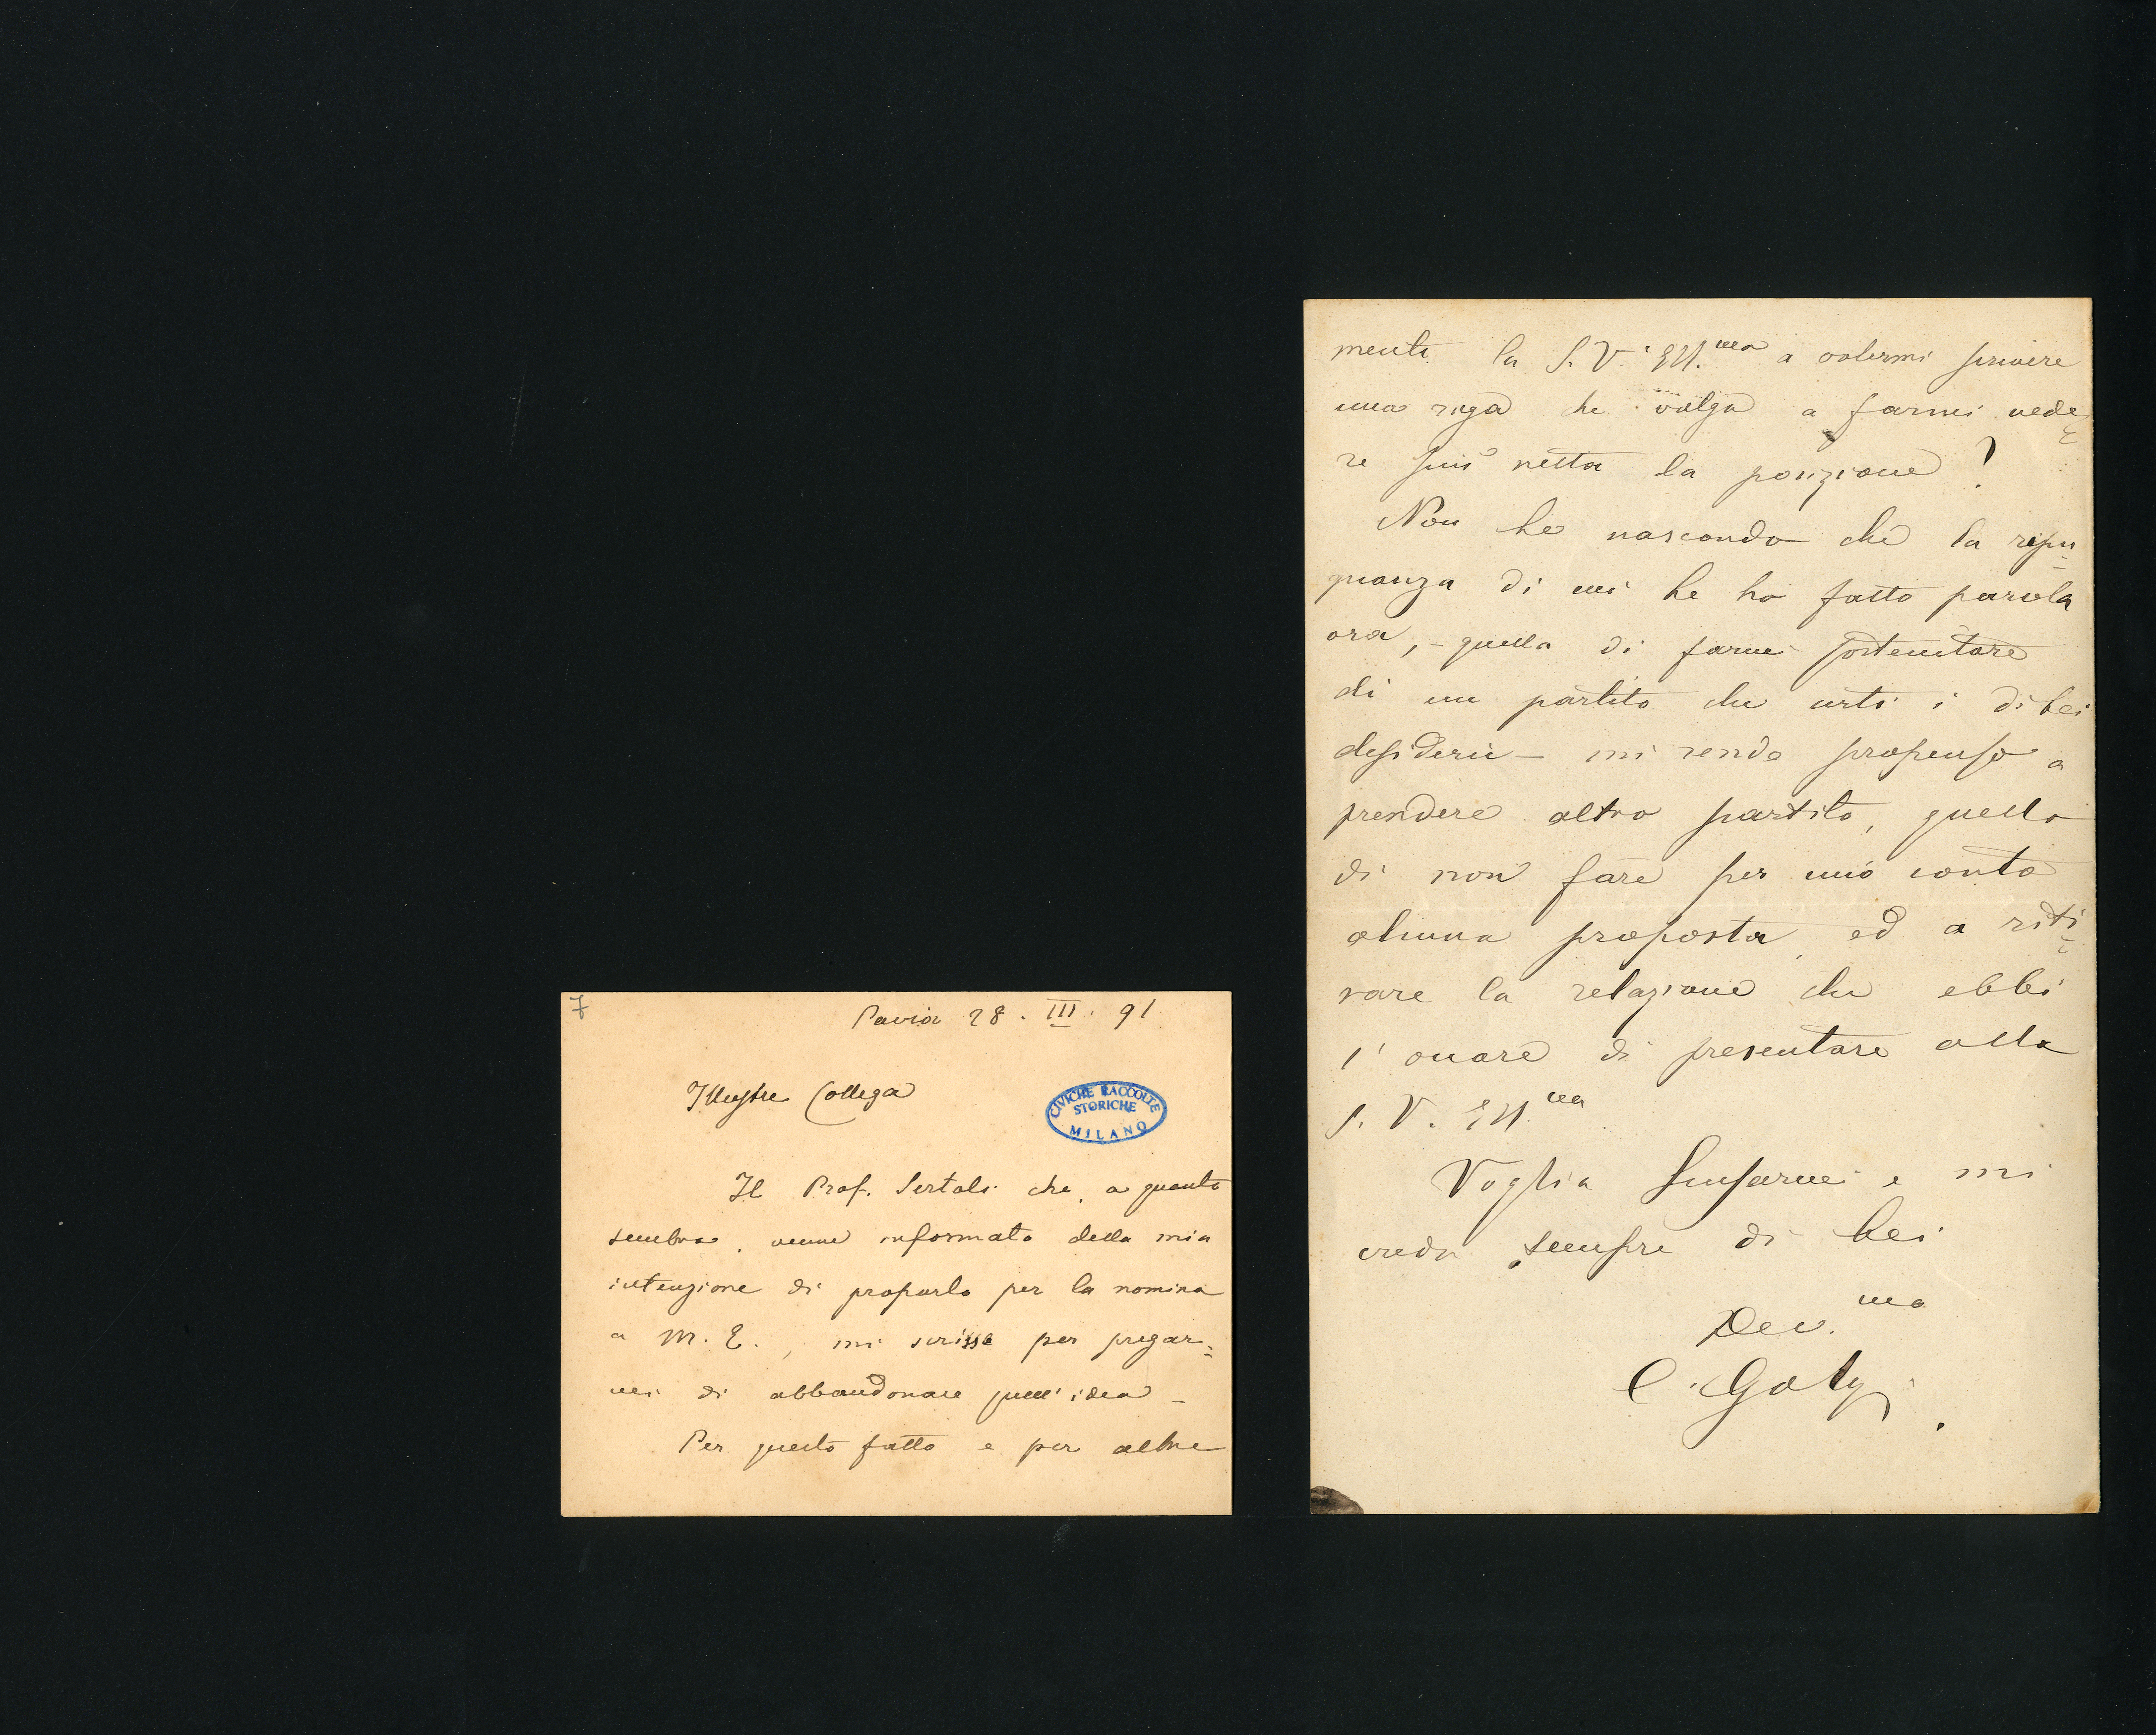 7
Pavia 28. III. 91
Illustre Collega
CIVICHE RACCOLTE
STORICHE
MILANO
Il Prof. Sertoli che, a quanto
sembra, venne informato della mia
intenzione di proporlo per la nomina
a M. E., mi scrisse per pregar=
mi di abbandonare quell'idea –
Per questo fatto e per altre
mente la S. V. Ill.ma a volermi scrivere
una riga che valga a farmi vede=
re più netta la posizione?
Non Le nascondo che la repu=
gnanza di cui Le ho fatto parola
ora, – quella di farmi sostenitore
di un partito che urti i di Lei
desideri – mi rende propenso a
prendere altro partito, quello
di non fare per mio conto
alcuna proposta, ed a riti=
rare la relazione che ebbi
l'onore di presentare alla
S. V. Ill.ma
Voglia scusarmi e mi
creda sempre di Lei
Dev.mo
C. Golgi.